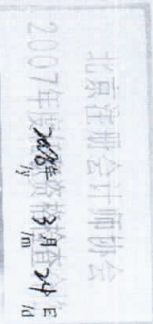 北京注册会计师协会
2007年度任职资格检查合格
2008年 3月 24日
/y /m /d